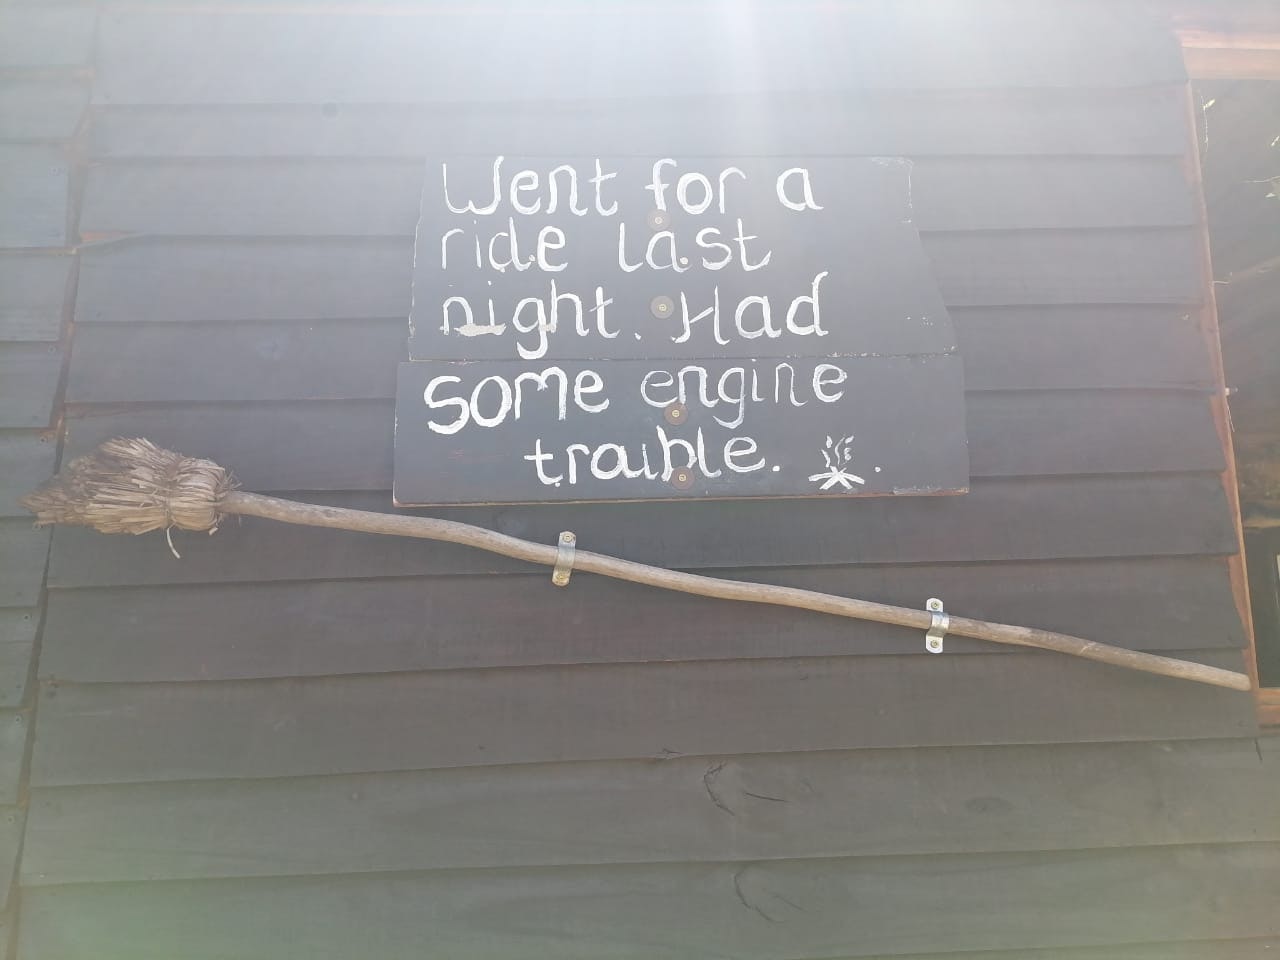 Went for a
ride last
night. Had
some engine
traible.